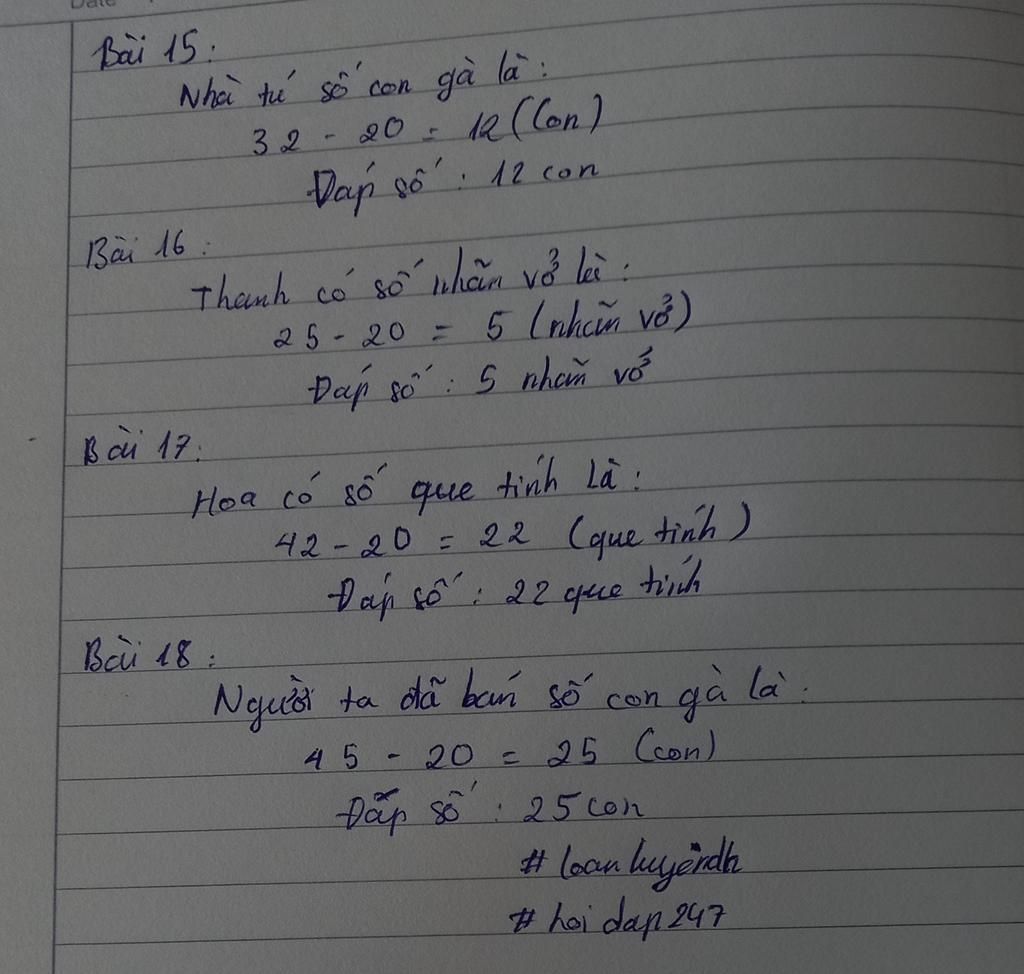 Date
Bài 15:
Nhà tú số con gà là:
32 - 20 = 12 (Con)
Đáp số: 12 con
Bài 16:
Thanh có số nhãn vở là:
25 - 20 = 5 (nhãn vở)
Đáp số: 5 nhãn vở
Bài 17:
Hoa có số que tính là:
42 - 20 = 22 (que tính)
Đáp số: 22 que tính
Bài 18:
Người ta đã bán số con gà là:
45 - 20 = 25 (con)
Đáp số: 25 con
# loanluyendh
# hoidap247